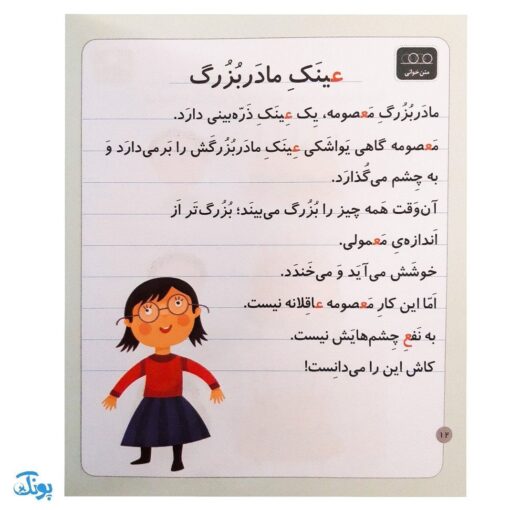 متن‌خوانی
عینَکِ مادَربُزُرگ
مادَربُزُرگِ مَعصومه، یِک عِینَکِ ذَرّه‌بینی دارَد.
مَعصومه گاهی یَواشَکی عِینَکِ مادَربُزُرگَش را بَرمی‌دارَد وَ
به چِشم می‌گُذارَد.
آن‌وَقت هَمه چیز را بُزُرگ می‌بینَد؛ بُزُرگ‌تَر اَز
اَندازه‌یِ مَعمولی.
خوشَش می‌آیَد وَ می‌خَندَد.
اَمّا این کارِ مَعصومه عاقِلانه نیست.
به نَفعِ چِشم‌هایَش نیست.
کاش این را می‌دانِست!
۱۲
پونک